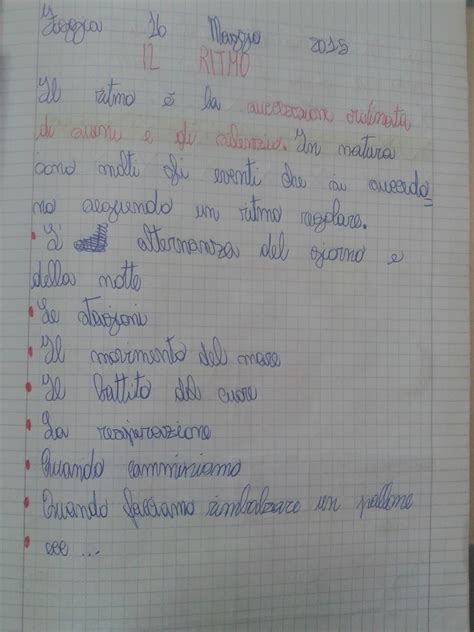 Foggia 16 Maggio 2018
IL RITMO
Il ritmo è la successione ordinata
di suoni e di silenzio. In natura
sono molti gli eventi che si succedo
no seguendo un ritmo regolare.
• L' alternanza del giorno e
della notte
• Le stagioni
• Il movimento del mare
• Il battito del cuore
• La respirazione
• Quando camminiamo
• Quando facciamo rimbalzare un pallone
• ecc ...